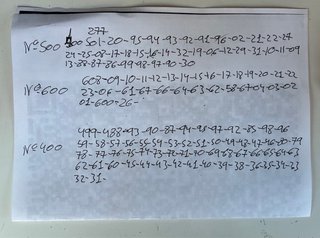 277
Nº 500 501-20-95-94-93-92-91-96-02-21-22-27
24-25-08-17-18-15-16-14-32-19-06-12-29-31-10-11-09
13-88-87-86-99-98-97-90-30
Nº 600 608-09-10-11-12-13-14-15-16-17-18-19-20-21-22
23-06-61-67-66-64-63-62-58-67-04-03-02
01-600-26-
Nº 400 499-488-93-90-87-94-95-97-92-85-98-96
59-58-57-56-55-54-53-52-51-50-49-48-47-46-80-79
78-77-76-75-74-73-72-71-70-69-68-67-66-65-64-63
62-61-60-45-44-43-42-41-40-39-38-36-35-34-33
32-31-